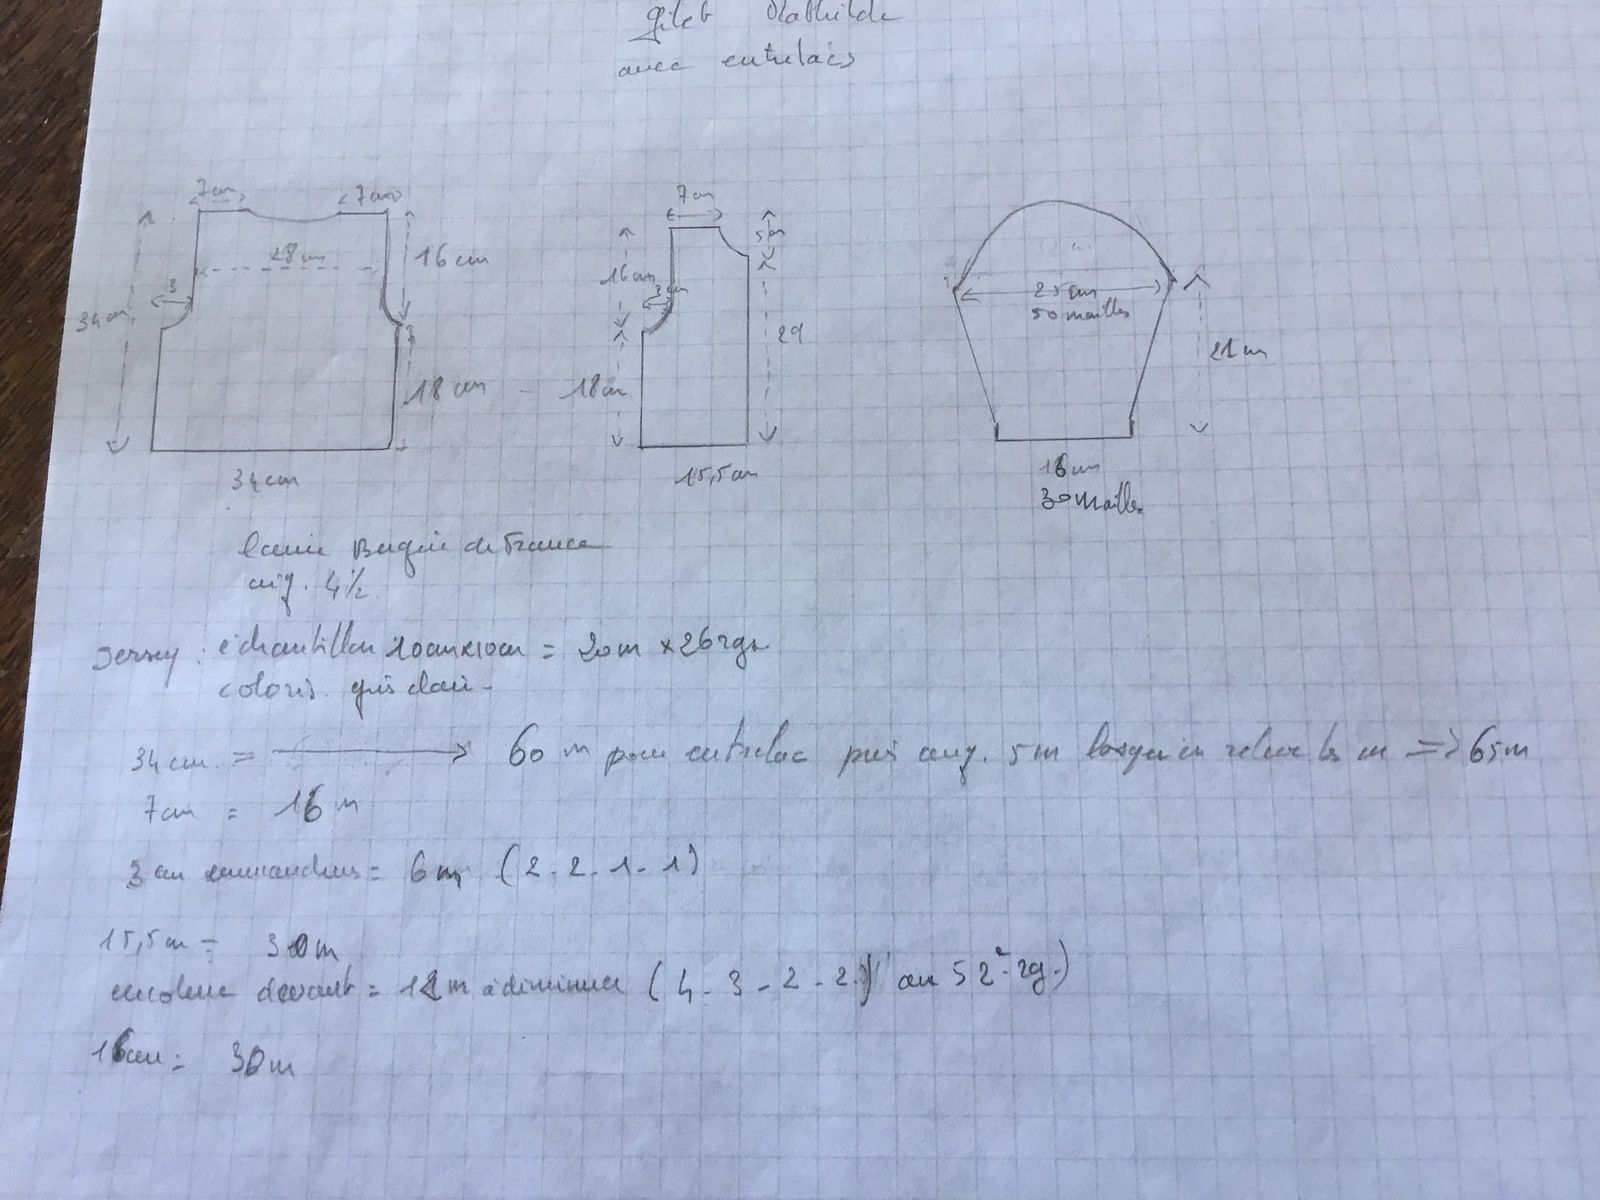 gilet Mathilde
avec entrelacs
7cm
7cm
28cm
16cm
3
34cm
18cm
34cm
7cm
5cm
16cm
3cm
29
18cm
15,5cm
25cm
50 mailles
21cm
16cm
30 mailles
laine Bergère de France
aig. 4 1/2
Jersey : échantillon 10cmx10cm = 20m x 26rgs
coloris gris clair
34cm = → 60 m pour entrelac puis aug. 5m lorsqu'on relève les m => 65m
7cm = 16m
3cm emmanchures = 6m (2-2-1-1)
15,5cm = 30m
encolure devant = m à diminuer (4-3-2-2) au 52è rg.)
16cm = 30m